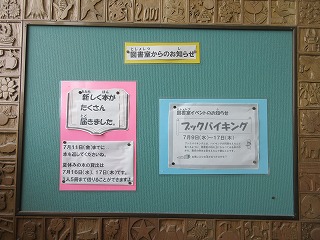 図書室からのお知らせ
新しく本が
たくさん
届きました。
7月11日(金)までに
本を返してくださいね。
夏休みの本の貸出は
7月16日(水)、17日(木)です。
1人5冊まで借りることができます!
図書室イベントのお知らせ
ブックバイキング
7月9日(水)~17日(木)